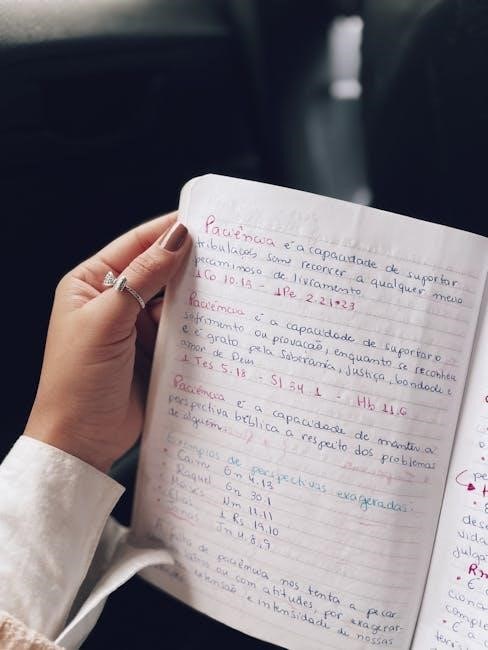 Paciência é a capacidade de suportar
tribulações sem recorrer a qualquer meio
pecaminoso de livramento.
1Co 10.13 - 1Pe 2.21-23
Paciência é a capacidade de suportar o
sofrimento ou provação, enquanto se reconhece
e é grato pela soberania, justiça, bondade e
amor de Deus
1 Tes 5.18 - Sl 34.1 - Hb 11.6
Paciência é a capacidade de manter a
perspectiva bíblica a respeito dos problemas
de alguém.
Exemplos de perspectivas exageradas:
• Caim Gn 4.13
• Raquel Gn 30.1
• Moisés Nm 11.11
• Elias 1 Rs 19.10
• Jonas Jn 4.8,9
A falta de paciência nos tenta a pecar
ou com atitudes, por exagerar
extensão e intensidade de nossas
• E
dese
vida
julga
• É
ciona
comple
• É a